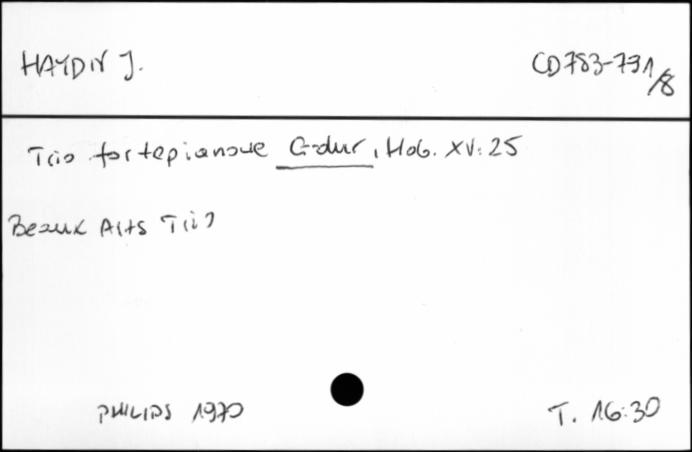 HAYDN J.
CD783-791/8
Trio fortepianowe G-dur, Hob. XV: 25
Beaux Arts Trio
PHILIPS 1970
T. 16:30